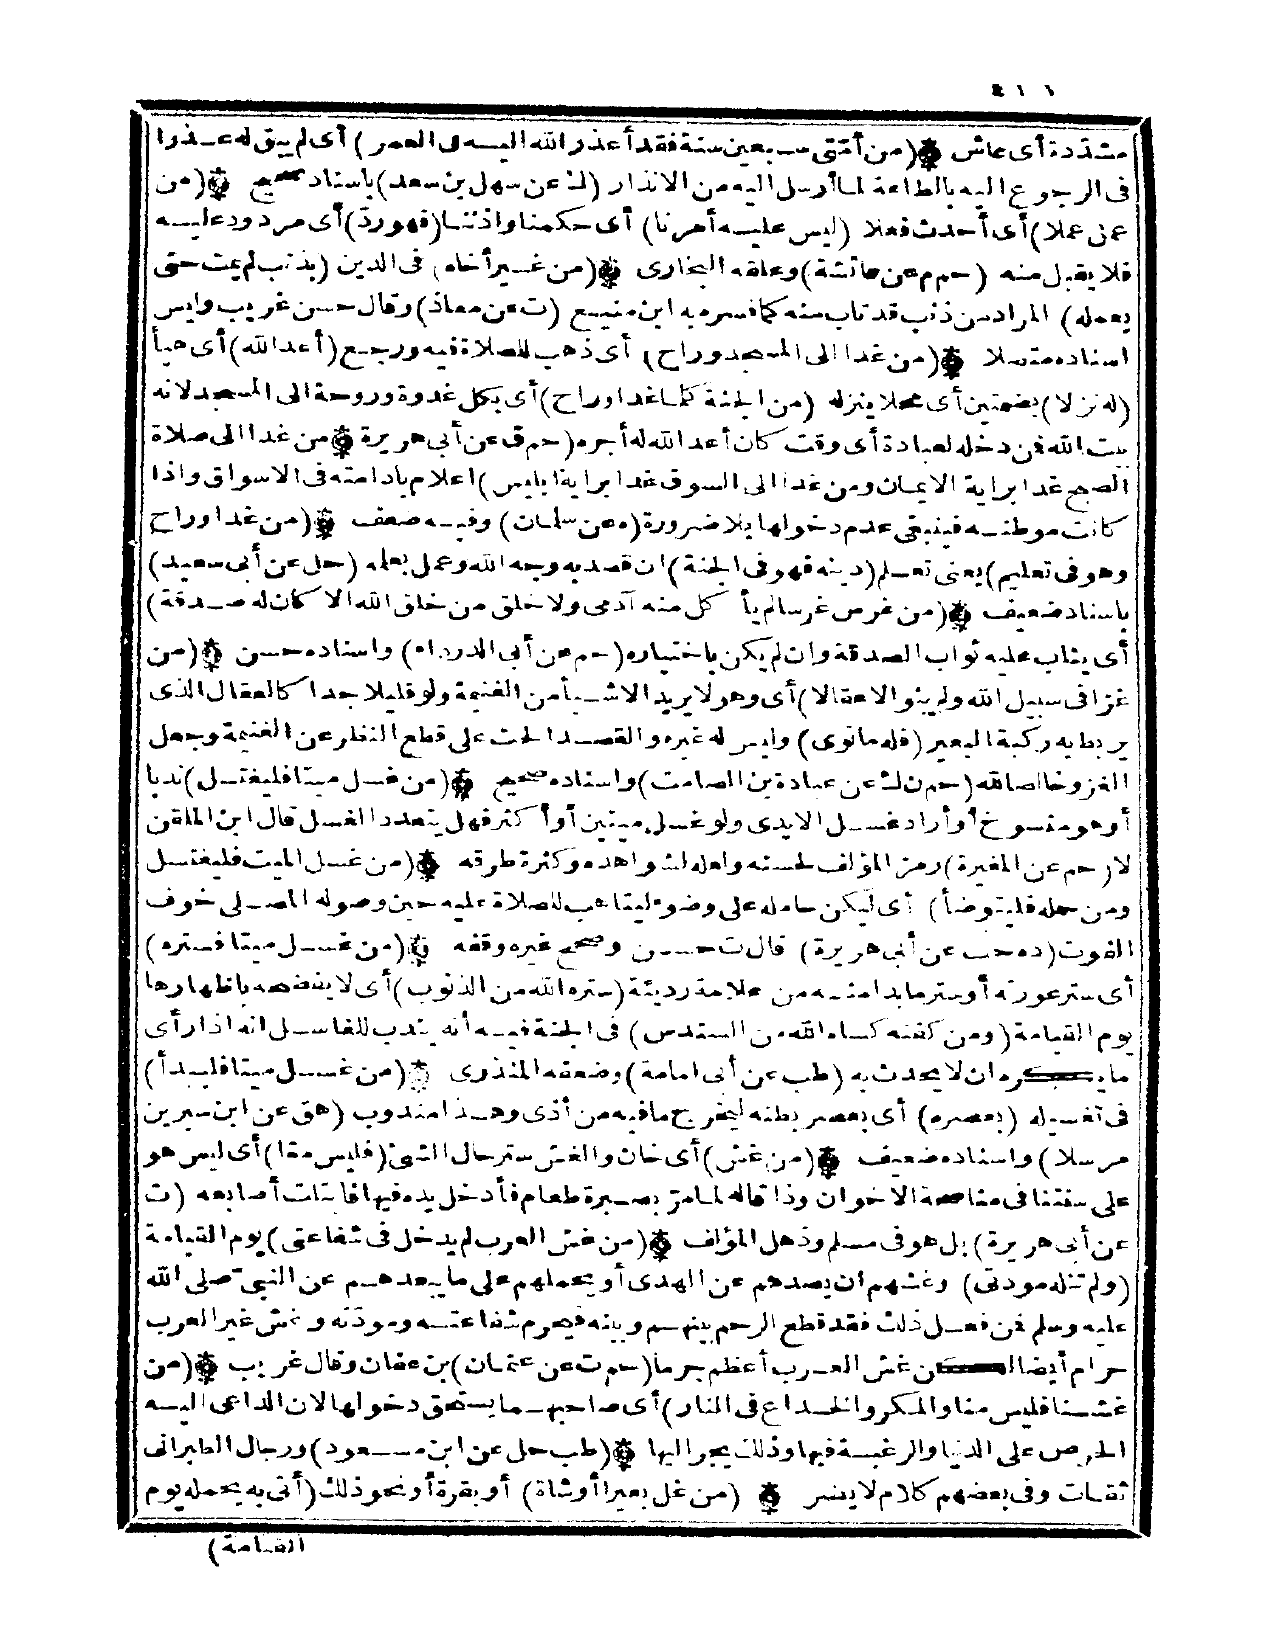 مشددة أى عاش (من أمتى سبعين سنة فقد أعذر الله اليه فى العمر) أى لم يبق له عذرا
فى الرجوع اليه بالطاعة لما أرسل اليه من الانذار (ك عن سهل بن سعد) باسناد صحيح (من
عمل عملا) أى أحدث فعلا (ليس عليه أمرنا) أى حكمنا واذننا (فهو رد) أى مردود عليه
فلا يقبل منه (حم م عن عائشة) وعلقه البخارى (من عير أخاه) فى الدين (بذنب لم يمت حتى
يعمله) المراد من ذنب قد تاب منه كما فسره به ابن منيع (ت عن معاذ) وقال حسن غريب وليس
اسناده متصلا (من غدا الى المسجد وراح) أى ذهب للصلاة فيه ورجع (أعد الله) أى هيأ
(له نزلا) بضمتين أى محلا ينزله (من الجنة كلما غدا وراح) أى بكل غدوة وروحة الى المسجد لانه
بيت الله فمن دخله لعبادة أى وقت كان أعد الله له أجره (حم ق عن أبى هريرة من غدا الى صلاة
الصبح غدا براية الايمان ومن غدا الى السوق غدا براية ابليس) اعلام بادامته فى الاسواق واذا
كانت موطنه فينبغى عدم دخولها بلا ضرورة (ه عن سلمان) وفيه ضعف (من غدا وراح
وهو فى تعليم) يعنى تعلم (دينه فهو فى الجنة) ان قصد به وجه الله وعمل بعلمه (حل عن أبى سعيد)
باسناد ضعيف (من غرس غرسا لم يأكل منه آدمى ولا خلق من خلق الله الا كان له صدقة)
أى يثاب عليه ثواب الصدقة وان لم يكن باختياره (حم عن أبى الدرداء) واسناده حسن (من
غزا فى سبيل الله ولم ينو الا عقالا) أى وهو لا يريد الا شيأ من الغنيمة ولو قليلا جدا كالعقال الذى
يربط به ركبة البعير (فله ما نوى) وليس له غيره والقصد الحث على قطع النظر عن الغنيمة وجعل
الغزو خالصا لله (حم ن ك عن عبادة بن الصامت) واسناده صحيح (من غسل ميتا فليغتسل) ندبا
أو هو منسوخ أو أراد غسل الايدى ولو غسل ميتين أو أكثر فهل يتعدد الغسل قال ابن الملقن
لا (حم عن المغيرة) رمز المؤلف لحسنه ولعله لشواهده وكثرة طرقه (من غسل الميت فليغتسل
ومن حمله فليتوضأ) أى ليكن حامله على وضوء ليتأهب للصلاة عليه حين وصوله المصلى خوف
الفوت (ده حب عن أبى هريرة) قال ت حسن وصحح غيره وقفه (من غسل ميتا فستره)
أى ستر عورته أو ستر ما بدا منه من علامة رديئة (ستره الله من الذنوب) أى لا يفضحه باظهارها
يوم القيامة (ومن كفنه كساه الله من السندس) فى الجنة فيه أنه يندب للغاسل انه اذا رأى
ما يكره ان لا يحدث به (طب عن أبى امامة) وضعفه المنذرى (من غسل ميتا فليبدأ)
فى تغسيله (بعصره) أى بعصر بطنه ليخرج ما فيه من أذى وهذا مندوب (هق عن ابن سيرين
مرسلا) واسناده ضعيف (من غش) أى خان والغش ستر حال الشئ (فليس منا) أى ليس هو
على سنتنا فى مناصحة الاخوان وذا قاله لما مر بصبرة طعام فأدخل يده فيها فابتلت أصابعه (ت
عن أبى هريرة) بل هو فى مسلم وذهل المؤلف (من غش العرب لم يدخل فى شفاعتى) يوم القيامة
(ولم تنله مودتى) وغشهم ان يصدهم عن الهدى أو يحملهم على ما يبعدهم عن النبى صلى الله
عليه وسلم فمن فعل ذلك فقد قطع الرحم بينهم وبينه فيحرم شفاعته ومودته وغش غير العرب
حرام أيضا لكن غش العرب أعظم جرما (حم ت عن عثمان) بن عفان وقال غريب (من
غشنا فليس منا والمكر والخداع فى النار) أى صاحبهما يستحق دخولها لان الداعى اليه
الحرص على الدنيا والرغبة فيها وذلك يجر اليها (طب حل عن ابن مسعود) ورجال الطبرانى
ثقات وفى بعضهم كلام لا يضر (من غل بعيرا أو شاة) أو بقرة أو نحو ذلك (أتى به يحمله يوم
القيامة)